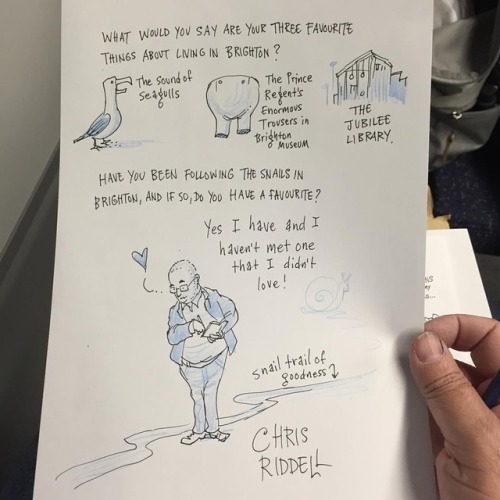 WHAT WOULD YOU SAY ARE YOUR THREE FAVOURITE
THINGS ABOUT LIVING IN BRIGHTON?
The Sound of
Seagulls
The Prince
Regent's
Enormous
Trousers in
Brighton
Museum
THE
JUBILEE
LIBRARY.
HAVE YOU BEEN FOLLOWING THE SNAILS IN
BRIGHTON, AND IF SO, DO YOU HAVE A FAVOURITE?
Yes I have and I
haven't met one
that I didn't
love!
snail trail of
goodness
CHRIS
RIDDELL